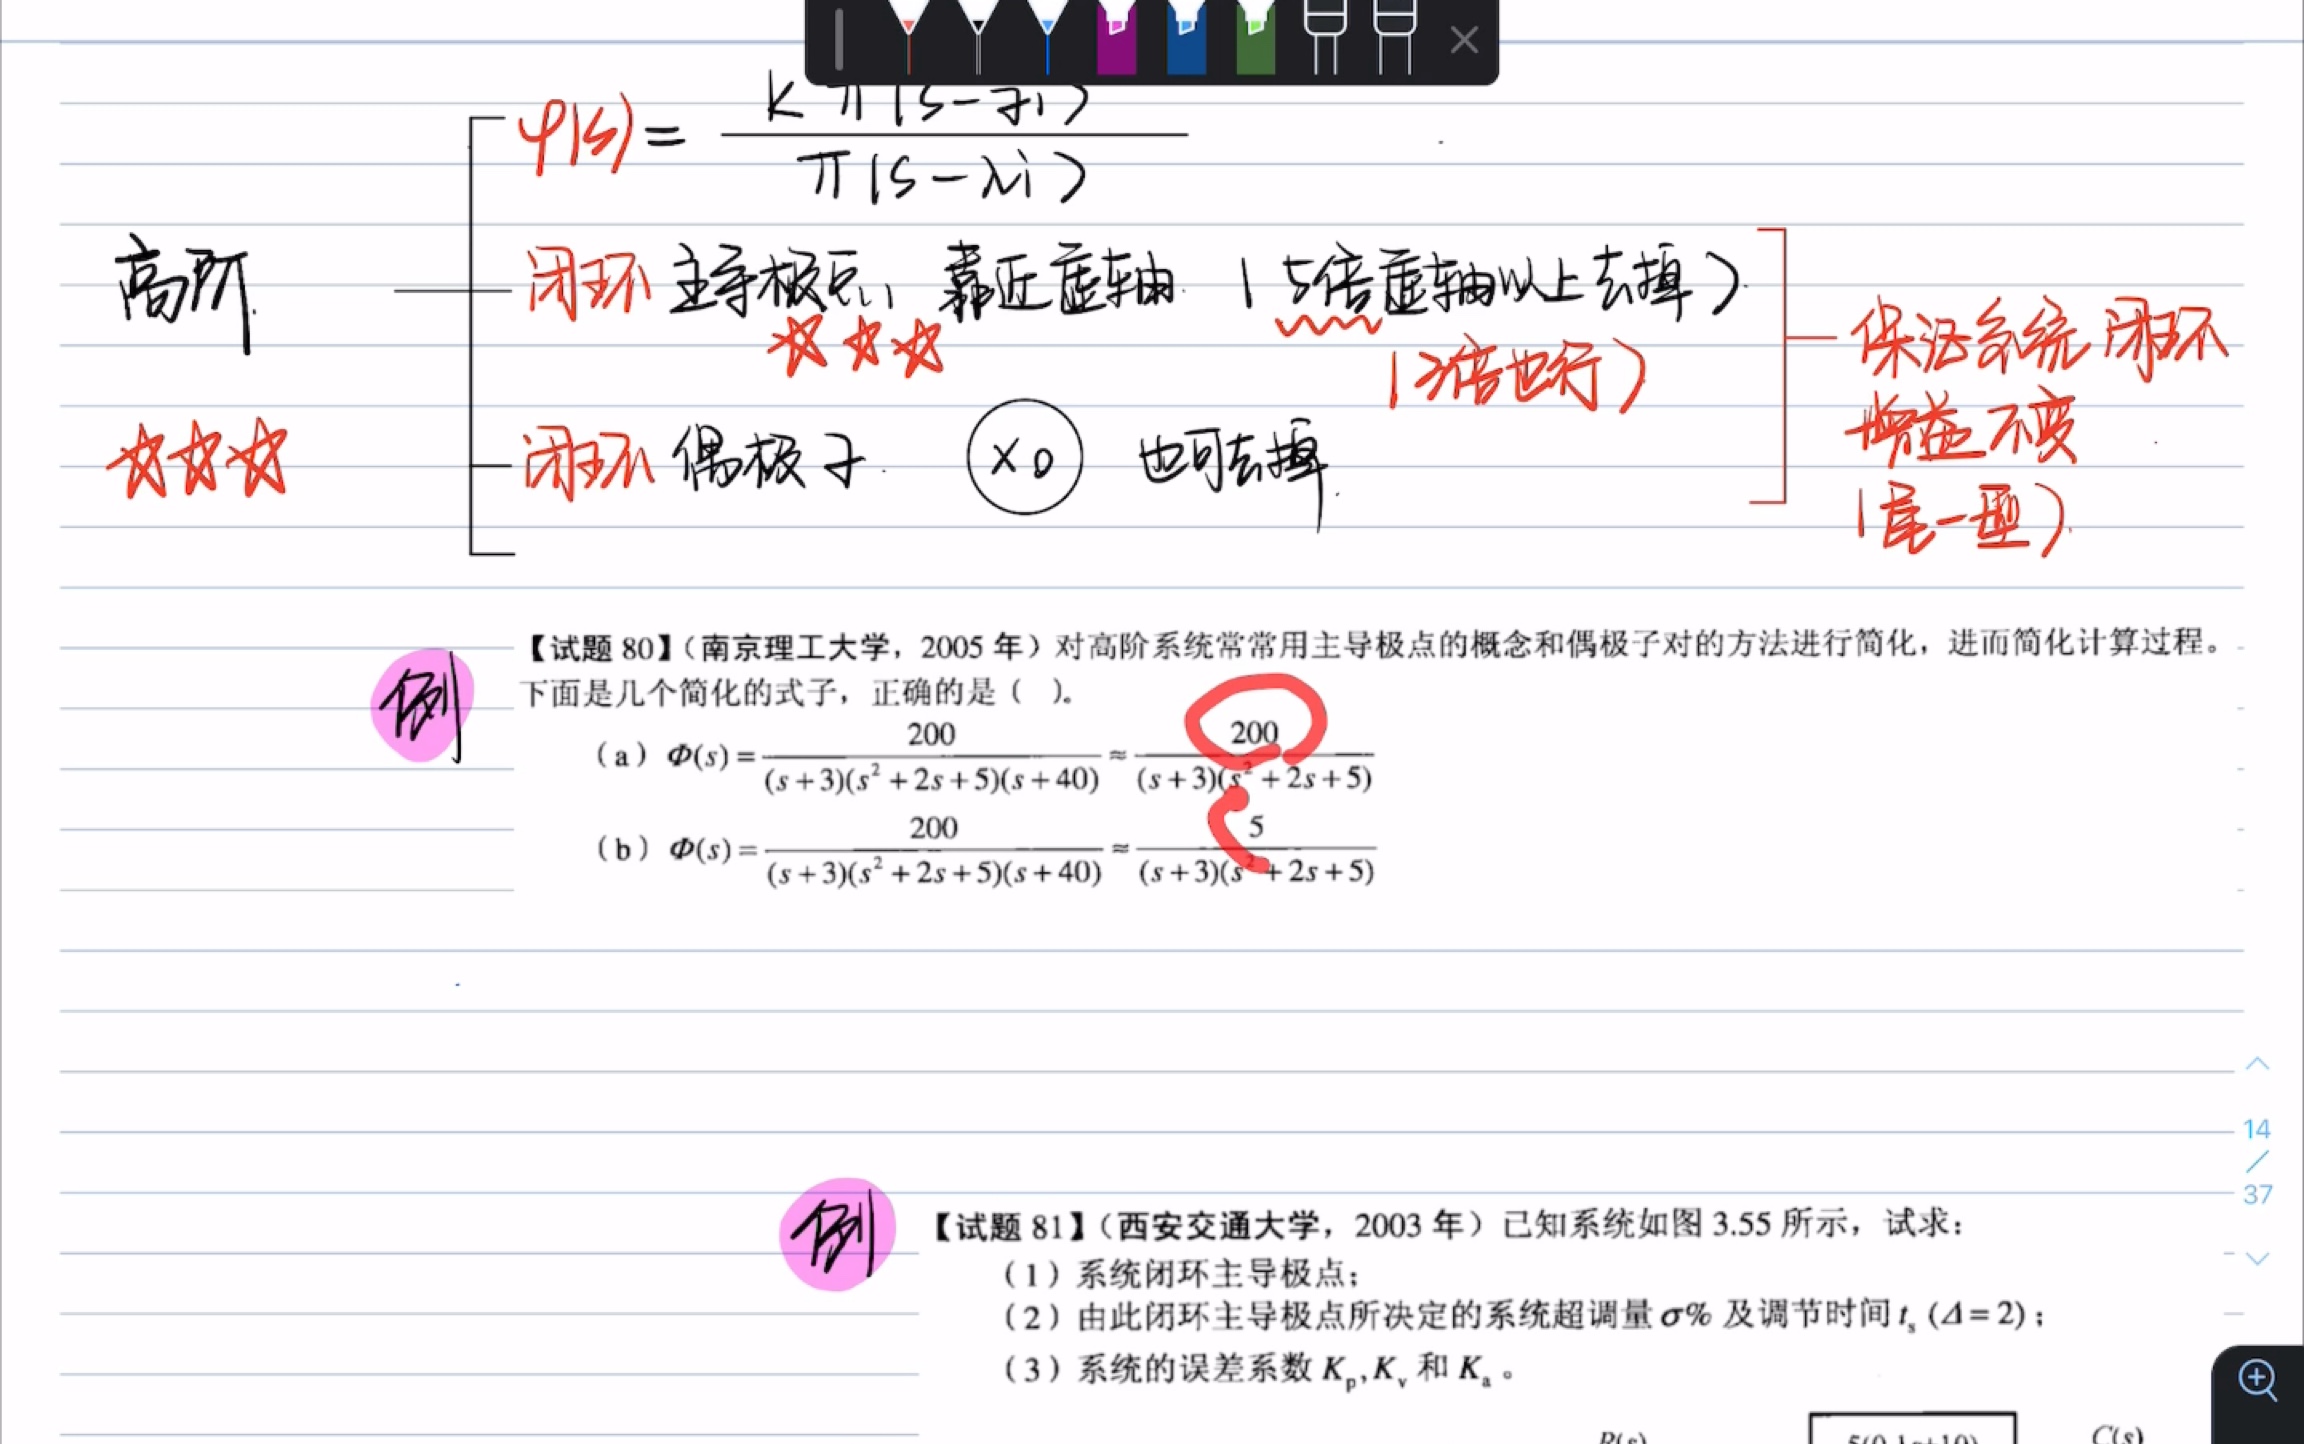 φ(s) = K π(s-zi) / π(s-λi)
高阶
闭环 主导极点, 靠近虚轴 (5倍虚轴以上去掉)
(3倍也行)
闭环 偶极子 ×o 也可去掉.
保证系统闭环
增益不变
(尾一型).
例
【试题 80】(南京理工大学，2005 年) 对高阶系统常常用主导极点的概念和偶极子对的方法进行简化，进而简化计算过程。
下面是几个简化的式子，正确的是（ ）。
（a）Φ(s) = 200 / (s+3)(s²+2s+5)(s+40) ≈ 200 / (s+3)(s²+2s+5)
（b）Φ(s) = 200 / (s+3)(s²+2s+5)(s+40) ≈ 5 / (s+3)(s²+2s+5)
14
/
37
例
【试题 81】(西安交通大学，2003 年) 已知系统如图 3.55 所示，试求：
（1）系统闭环主导极点；
（2）由此闭环主导极点所决定的系统超调量 σ% 及调节时间 tₛ (Δ=2)；
（3）系统的误差系数 Kp, Kv 和 Ka 。
R(s) 5(0.1s+10) C(s)